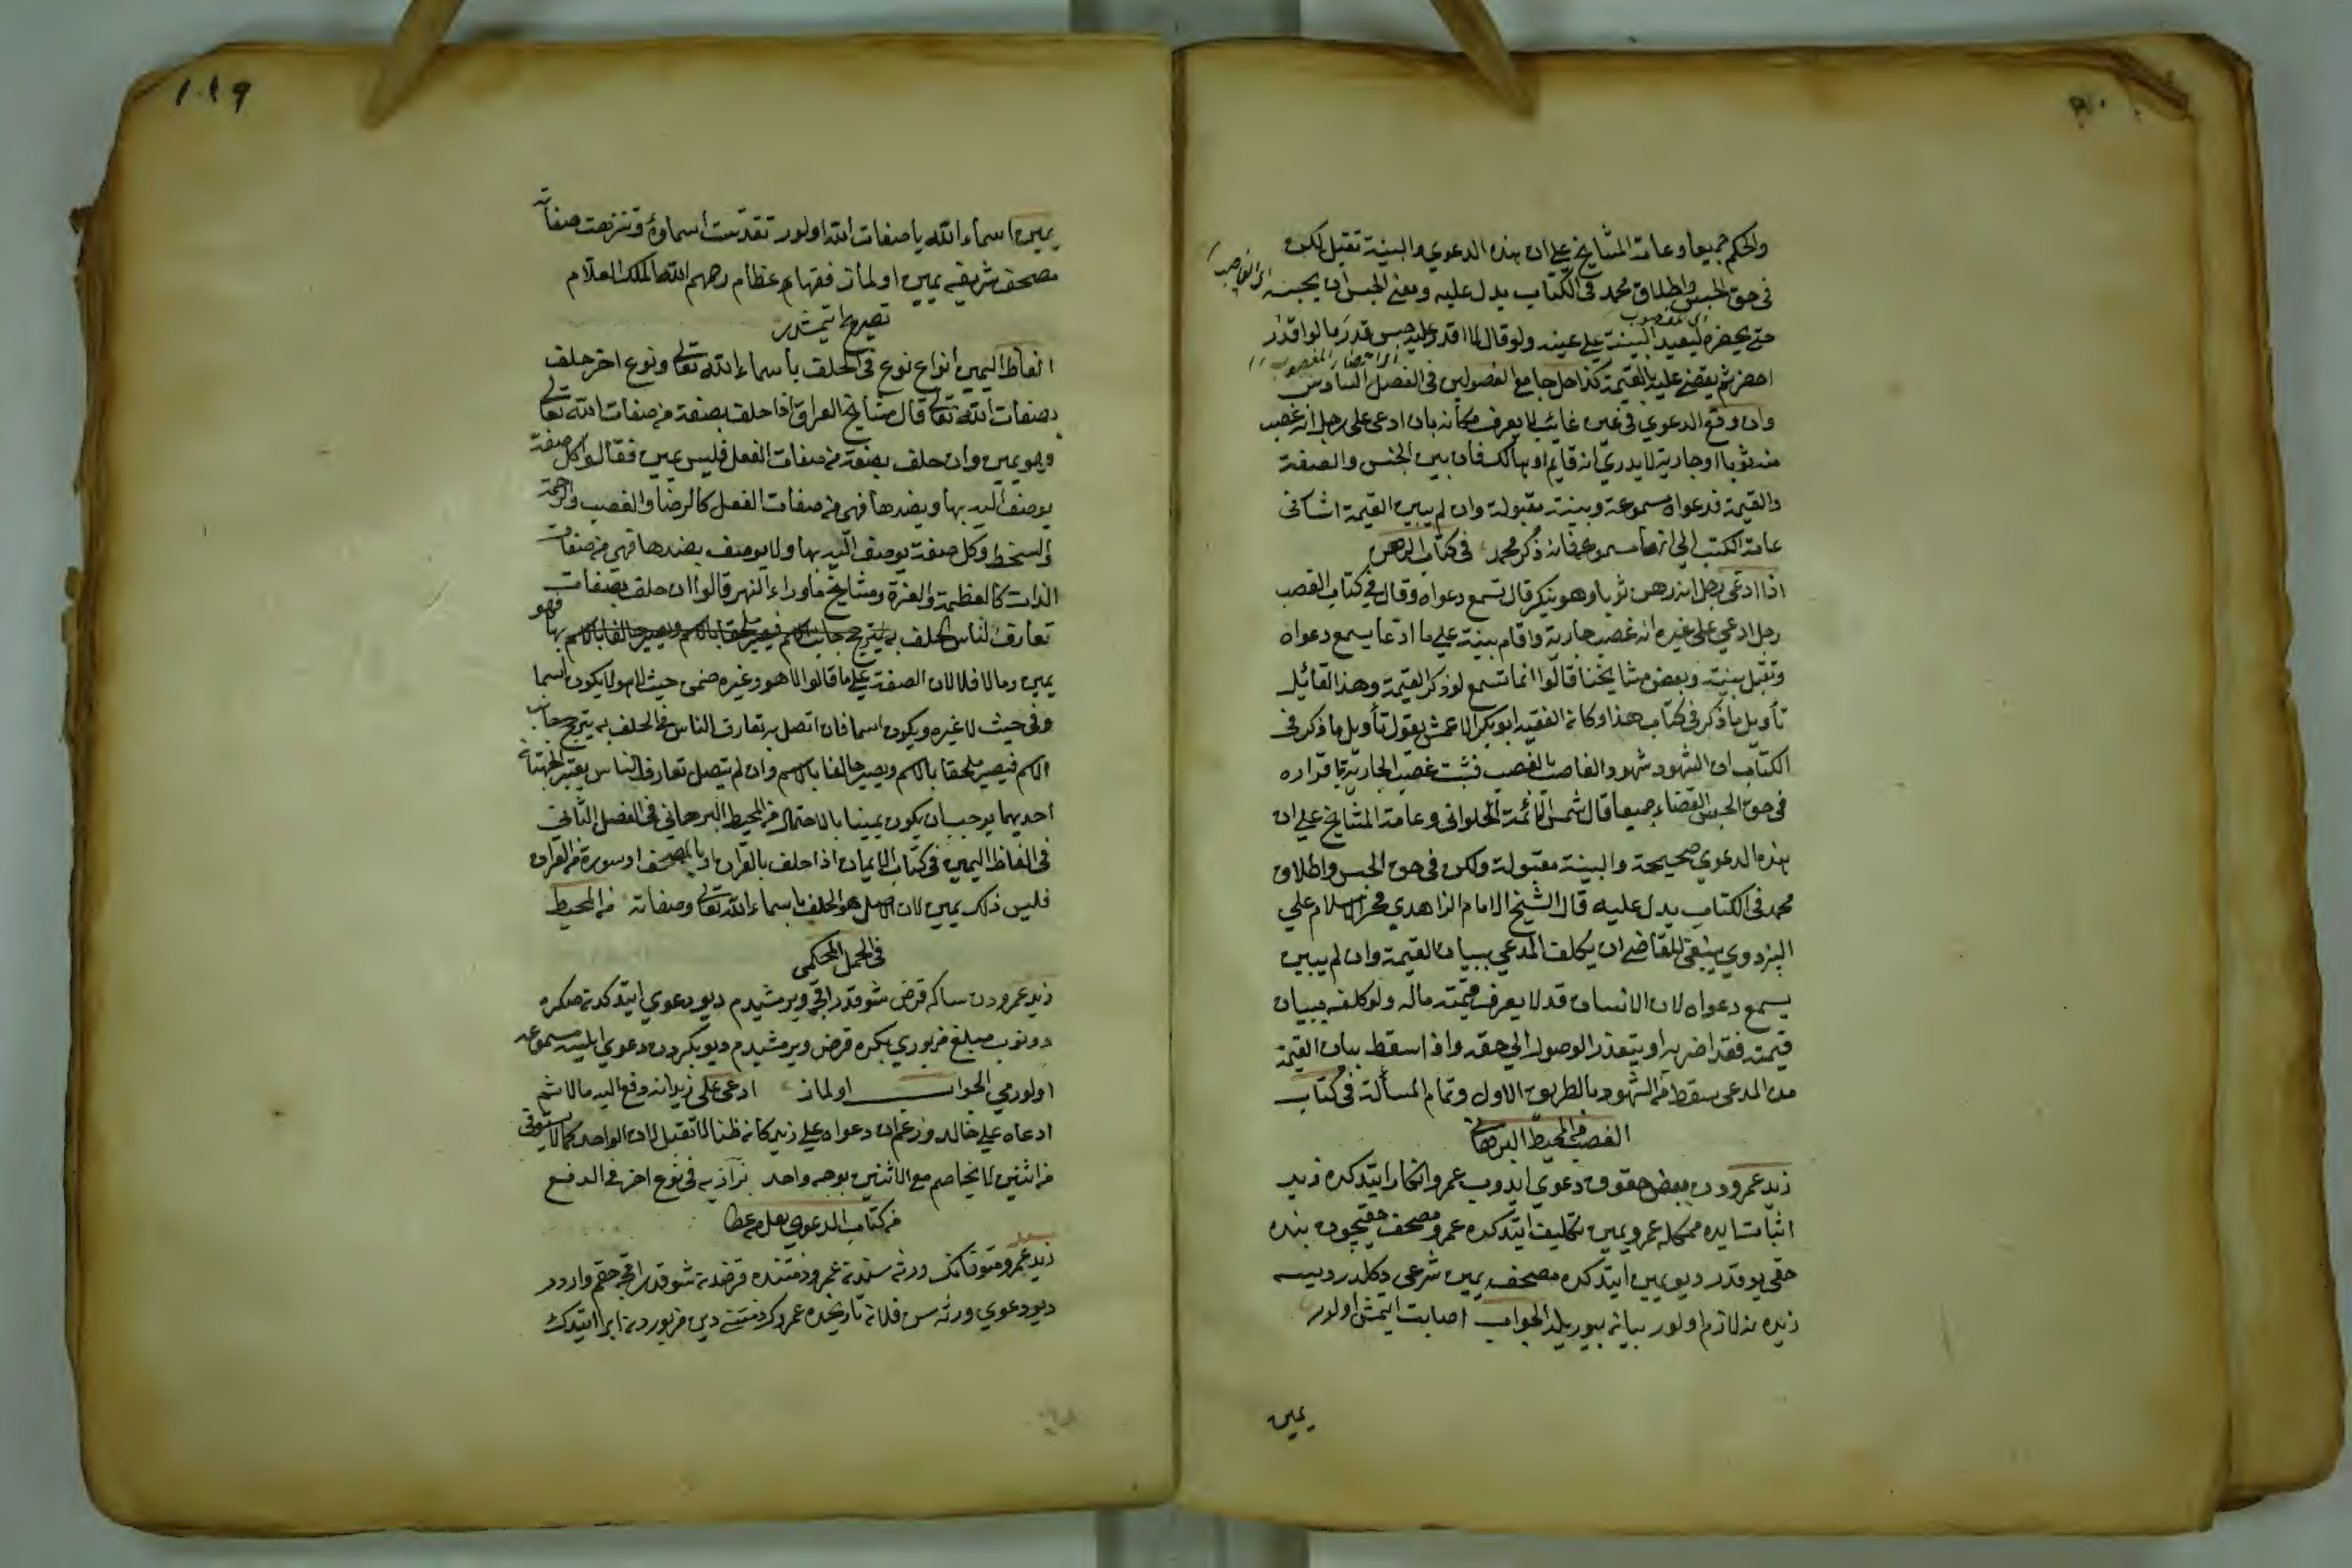 والحكم جميعا وعامة المشايخ على ان هذه الدعوي والبينة تقبل لكن
في حق الحبس واطلاق محمد في الكتاب يدل عليه ومعنى الحبس ان يحبسه
اى الغاصب
اى المغصوب
حتى يحضره ليعيد البينة على عينه ولو قال لا اقدر عليه حبس قدر ما لو اقدر
اى احضار المغصوب
احضر ثم يقضى عليه بالقيمة كذا حل جامع الفصولين في الفصل السادس
وان وقع الدعوي في عين غائب لا يعرف مكانه بان ادعى على رجل انه غصب
منه ثوبا او جارية لا يدري انه قايم او هالك فان بين الجنس والصفة
والقيمة فدعواه مسموعة وبينته مقبولة وان لم يبين القيمة اشار في
عامة الكتب الي انها مسموعة فانه ذكر محمد في كتاب الرهن
اذا ادعى رجل انه رهن ثوبا وهو ينكر قال تسمع دعواه وقال في كتاب الغصب
رجل ادعي على غيره انه غصب جارية واقام بينة على ما ادعا يسمع دعواه
وتقبل بينته وبعض مشايخنا قالوا انما تسمع لو ذكر القيمة وهذا القائل
تأويل ما ذكر في كتاب هذا وكان الفقيه ابو بكر الاعمش يقول تأويل ما ذكر في
الكتاب ان الشهود شهدوا الغاصب بالغصب فثبت غصب الجارية باقراره
في حق الحبس القضاء جميعا قال شمس الائمة الحلواني وعامة المشايخ على ان
هذه الدعوي صحيحة والبينة مقبولة ولكن في حق الحبس واطلاق
محمد في الكتاب يدل عليه قال الشيخ الامام الزاهدي فخر الاسلام علي
البزدوي ينبغى للقاضى ان يكلف المدعي ببيان القيمة وان لم يبين
يسمع دعواه لان الانسان قد لا يعرف قيمته ماله ولو كلفه ببيان
قيمته فقد اضر به او يتعذر الوصول الي حقه واذا سقط بيان القيمة
من المدعى سقط من الشهود بالطريق الاول وتمام المسألة في كتاب
الغصب من المحيط البرهانى
زيد عمرودن بعض حقوق دعوي ايدوب عمرو انكار ايتدكده زيد
اثباتدن عمرو يمين تكليف ايتدكده عمرو مصحف حقيچون بنده
حقى يوقدر ديو يمين ايتدكده مصحفه يمين شرعى دكلدر ديسه
زيده نه لازم اولور بيان بيوريله الجواب اصابت ايتمش اولور
يمين
١٠١٩
يمين اسماء الله يا صفات الله اولور تقدست اسماؤه وتنزهت صفاته
مصحف شريفه يمين اولماز فقهاى عظام رحمهم الله الملك العلام
تصريح ايتمشلردر
الفاظ اليمين انواع نوع في الحلف بأسماء الله تعالى ونوع اخر حلف
بصفات الله تعالى قال مشايخ العراق اذا حلف بصفة من صفات الله تعالى
وهو يمين وان حلف بصفة من صفات الفعل فليس يمين فقالوا كل صفة
يوصف اليه بها وبضدها فهى من صفات الفعل كالرضا والغضب والرحمة
والسخط وكل صفة يوصف اليه بها ولا يوصف بضدها فهى من صفات
الذات كالعظمة والعزة ومشايخ ماوراء النهر قالوا ان حلف بصفات
تعارف الناس الحلف به يترجح جانب الاسم فيصير ملحقا بالاسم ويصير حالفا بالاسم بها فهو
يمين وما لا فلا لان الصفة على ما قالوا لا هو وغيره فمن حيث لا هو لا يكون اسما
وفي حيث لا غيره ويكون اسما فان اتصل به تعارف الناس في الحلف به يترجح جانب
الاسم فيصير ملحقا بالاسم ويصير حالفا بالاسم وان لم يتصل تعارف الناس
احديهما يوجب ان يكون يمينا بالاحتمال من المحيط البرهاني في الفصل الثاني
في الفاظ اليمين في كتاب الايمان اذا حلف بالقران او بالمصحف او سورة من القران
فليس ذلك يمين لان الاصل هو الحلف باسماء الله تعالى وصفاته من المحيط
زيد عمرودن قرض شو قدر اقچه ويرمشيدم ديو دعوي ايتدكدنصكره
دونوب مبلغ مزبوري بكره قرض ويرمشيدم ديو بكردن دعوي ايلسه مسموعه
اولورمي الجواب اولماز ادعى على زيد انه دفع اليه مالا ثم
ادعاه على خالد وزعم ان دعواه على زيد كانه ظنا لا تقبل لان الواحد كما لا يستوفى
من اثنين لا يخاصم مع الاثنين بوجه واحد بزازيه في نوع اخر في الدفع
من كتاب الدعوي
زيد عمرو متوفانك ورثه سندن عمرو ذمتنده قرضدن شو قدر اقچه حقم واردر
ديو دعوي ورثه سى فلان تاريخده عمروك ذمتنى دين مزبوردن ابرا ايتدك